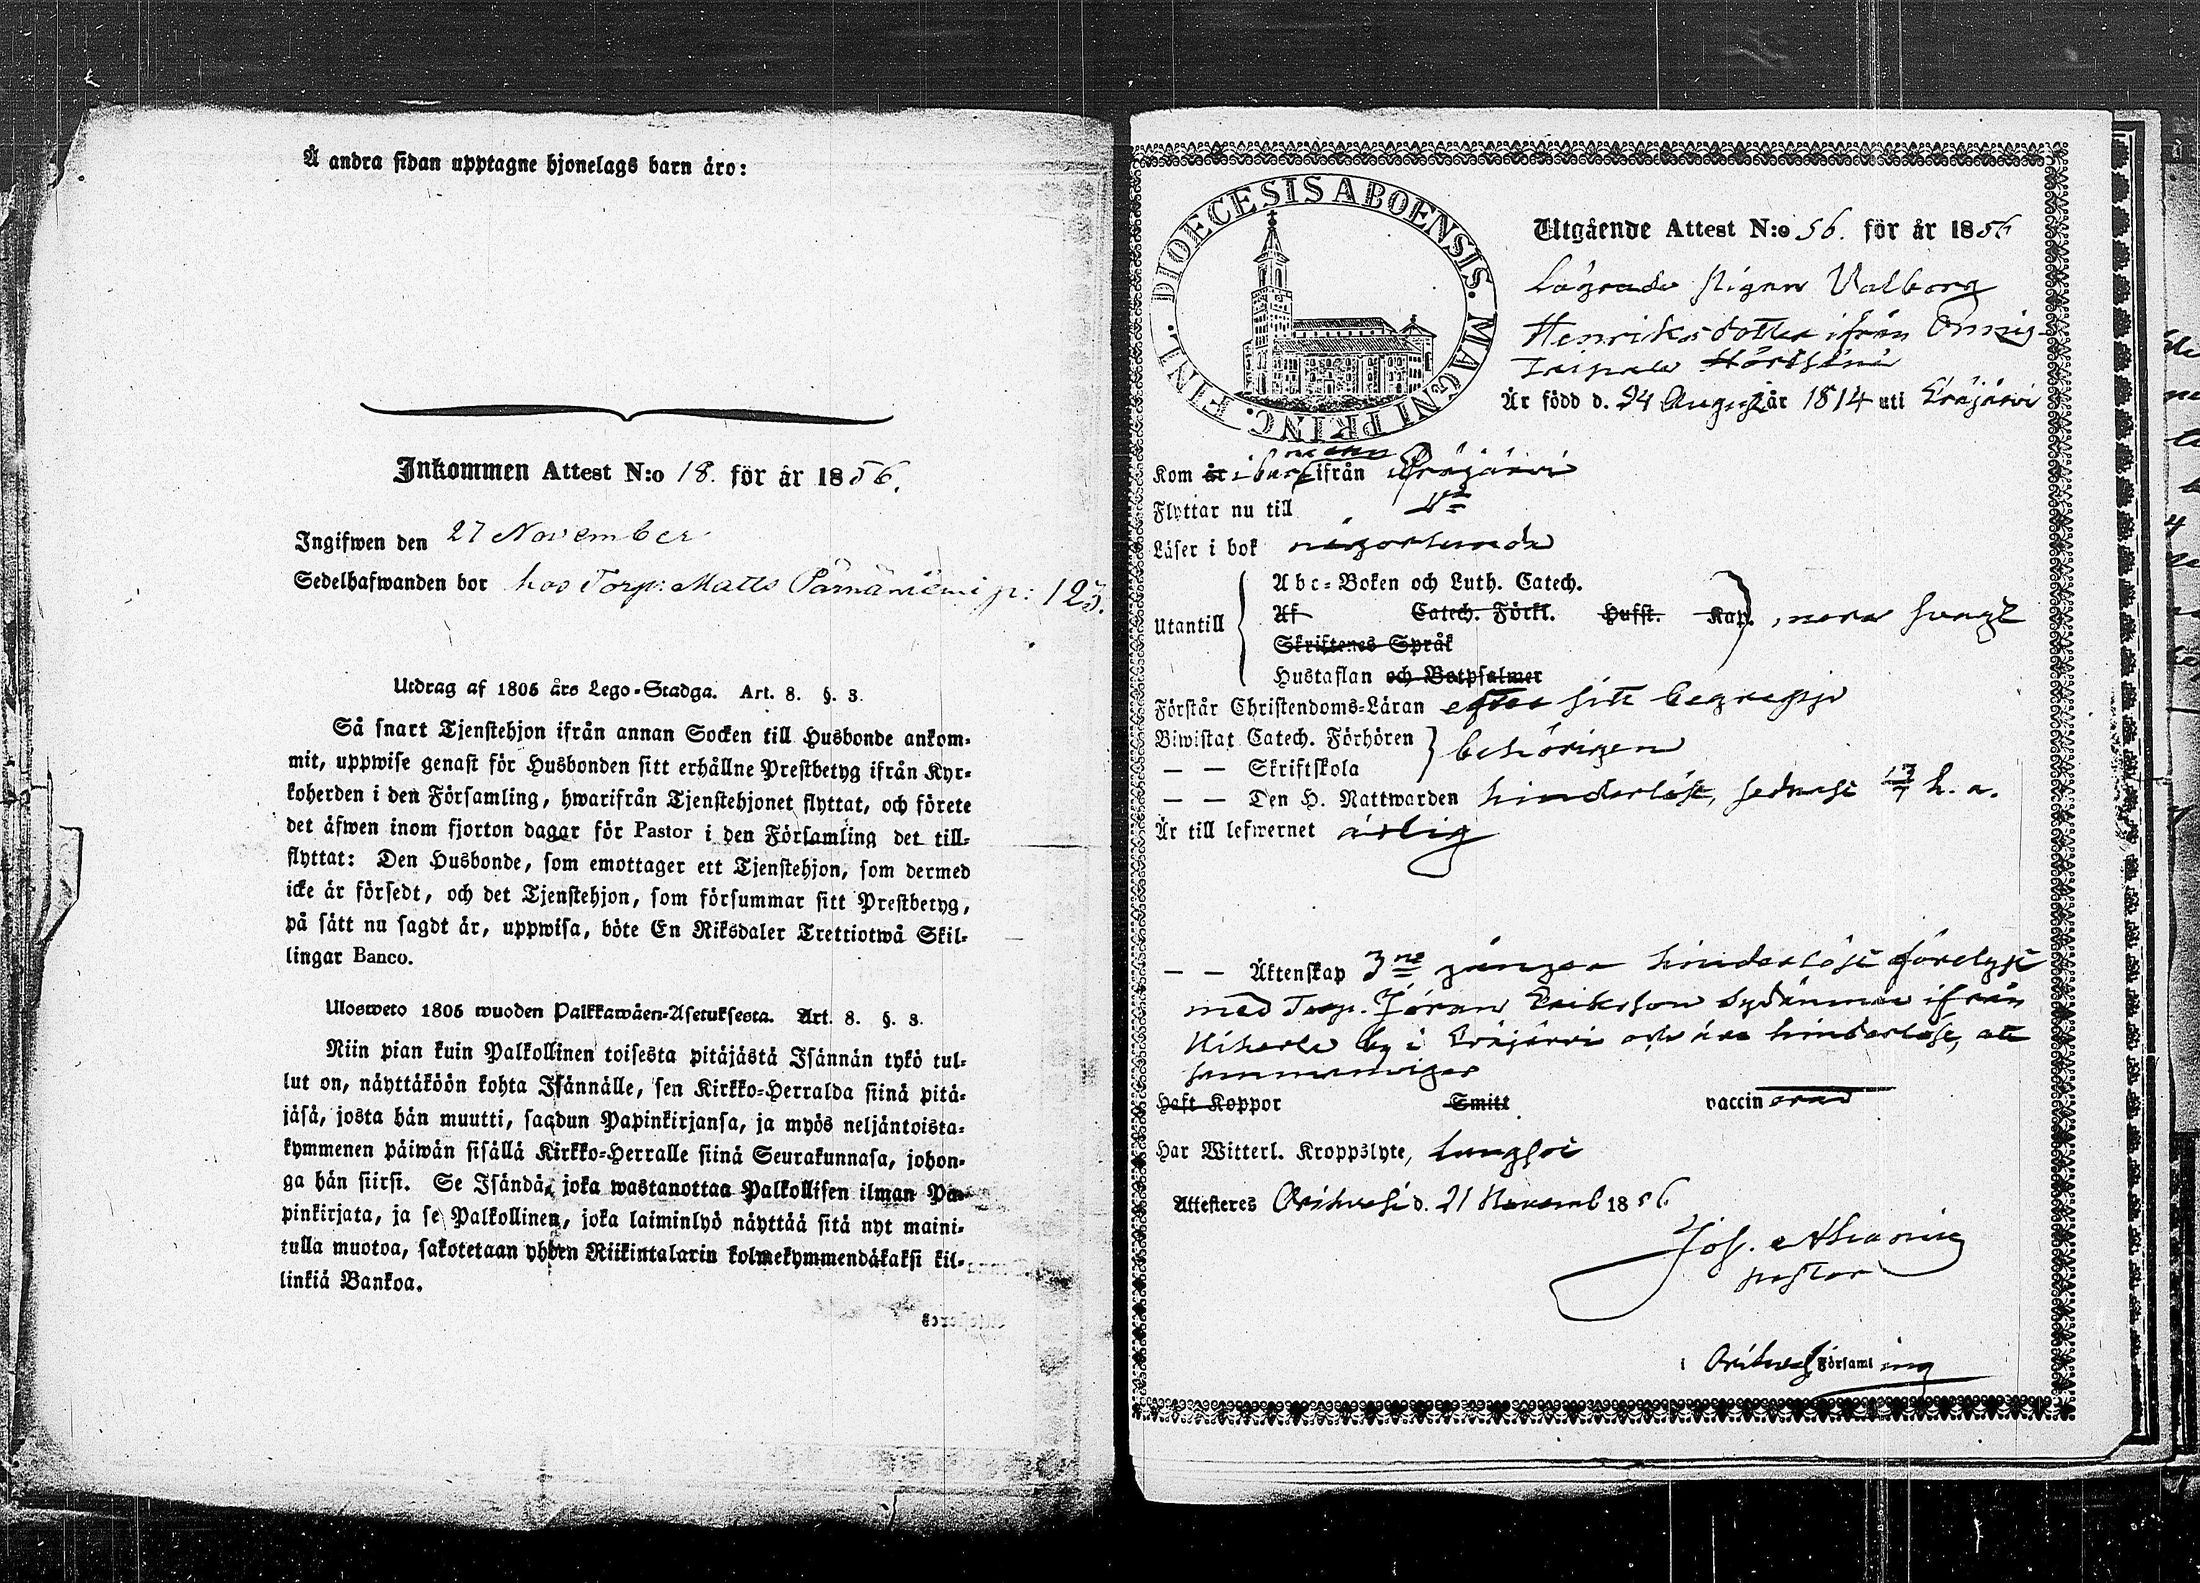 Å andra sidan upptagne hjonelags barn äro:
Inkommen Attest N:o 18. för år 1856.
Ingifwen den 27 November
Sedelhafwanden bor hos Torp: Matts Pärnäniemi p: 123.
Utdrag af 1805 års Lego-Stadga. Art. 8. §. 3.
Så snart Tjenstehjon ifrån annan Socken till Husbonde ankom-
mit, uppwise genast för Husbonden sitt erhållne Prestbetyg ifrån Kyr-
koherden i den Församling, hwarifrån Tjenstehjonet flyttat, och förete
det äfwen inom fjorton dagar för Pastor i den Församling det till-
flyttat: Den Husbonde, som emottager ett Tjenstehjon, som dermed
icke är försedt, och det Tjenstehjon, som försummar sitt Prestbetyg,
på sätt nu sagdt är, uppwisa, böte En Riksdaler Trettiotwå Skil-
lingar Banco.
Ulosweto 1805 wuoden Palkkawäen-Asetuksesta. Art. 8. §. 3.
Niin pian kuin Palkollinen toisesta pitäjästä Isännän tykö tul-
lut on, näyttäköön kohta Isännälle, sen Kirkko-Herralda siinä pitä-
jäsä, josta hän muutti, saadun Papinkirjansa, ja myös neljäntoista-
kymmenen päiwän sisällä Kirkko-Herralle siinä Seurakunnasa, johon-
ga hän siirsi. Se Isändä, joka wastanottaa Palkollisen ilman Pa-
pinkirjata, ja se Palkollinen, joka laiminlyö näyttää sitä nyt maini-
tulla muotoa, sakotetaan yhden Riikintalarin kolmekymmendäkaksi kil-
linkiä Bankoa.
DIOECESIS ABOENSIS. MAGNI PRINC. FINL.
Utgående Attest N:o 56. för år 1856
Lägrade Pigan Valborg
Henriksdotter ifrån Onnis-
Är född d. 24 Augusti år 1814 uti Eräjärvi
Kom år ifrån Eräjärvi
Flyttar nu till
Läser i bok någorlunda
Abc-Boken och Luth. Catech.
Utantill Af Catech. Förkl. Hufst. Kap. , nora svagt
Skriftenes Språk
Hustaflan och Botpsalmer
Förstår Christendoms-Läran efter sitt begrepp
Biwistat Catech. Förhören behörigen
— — Skriftskola
— — Den H. Nattwarden hinderlöst, sednast 13/7 h. a.
Är till lefwernet ärlig
— — Äktenskap 3ne gånger hinderlöst förelyst
med Torp. Jöran Eriksson Sydänmaa ifrån
by i Eräjärvi och äro hinderlöse att
sammanvigas
Haft Koppor Smitt vaccinerad
Har Witterl. Kroppslyte, Lungsot
Attesteres Orihvesi d. 21 Novemb 1856
Joh.
pastor
i Orihvesi Församling